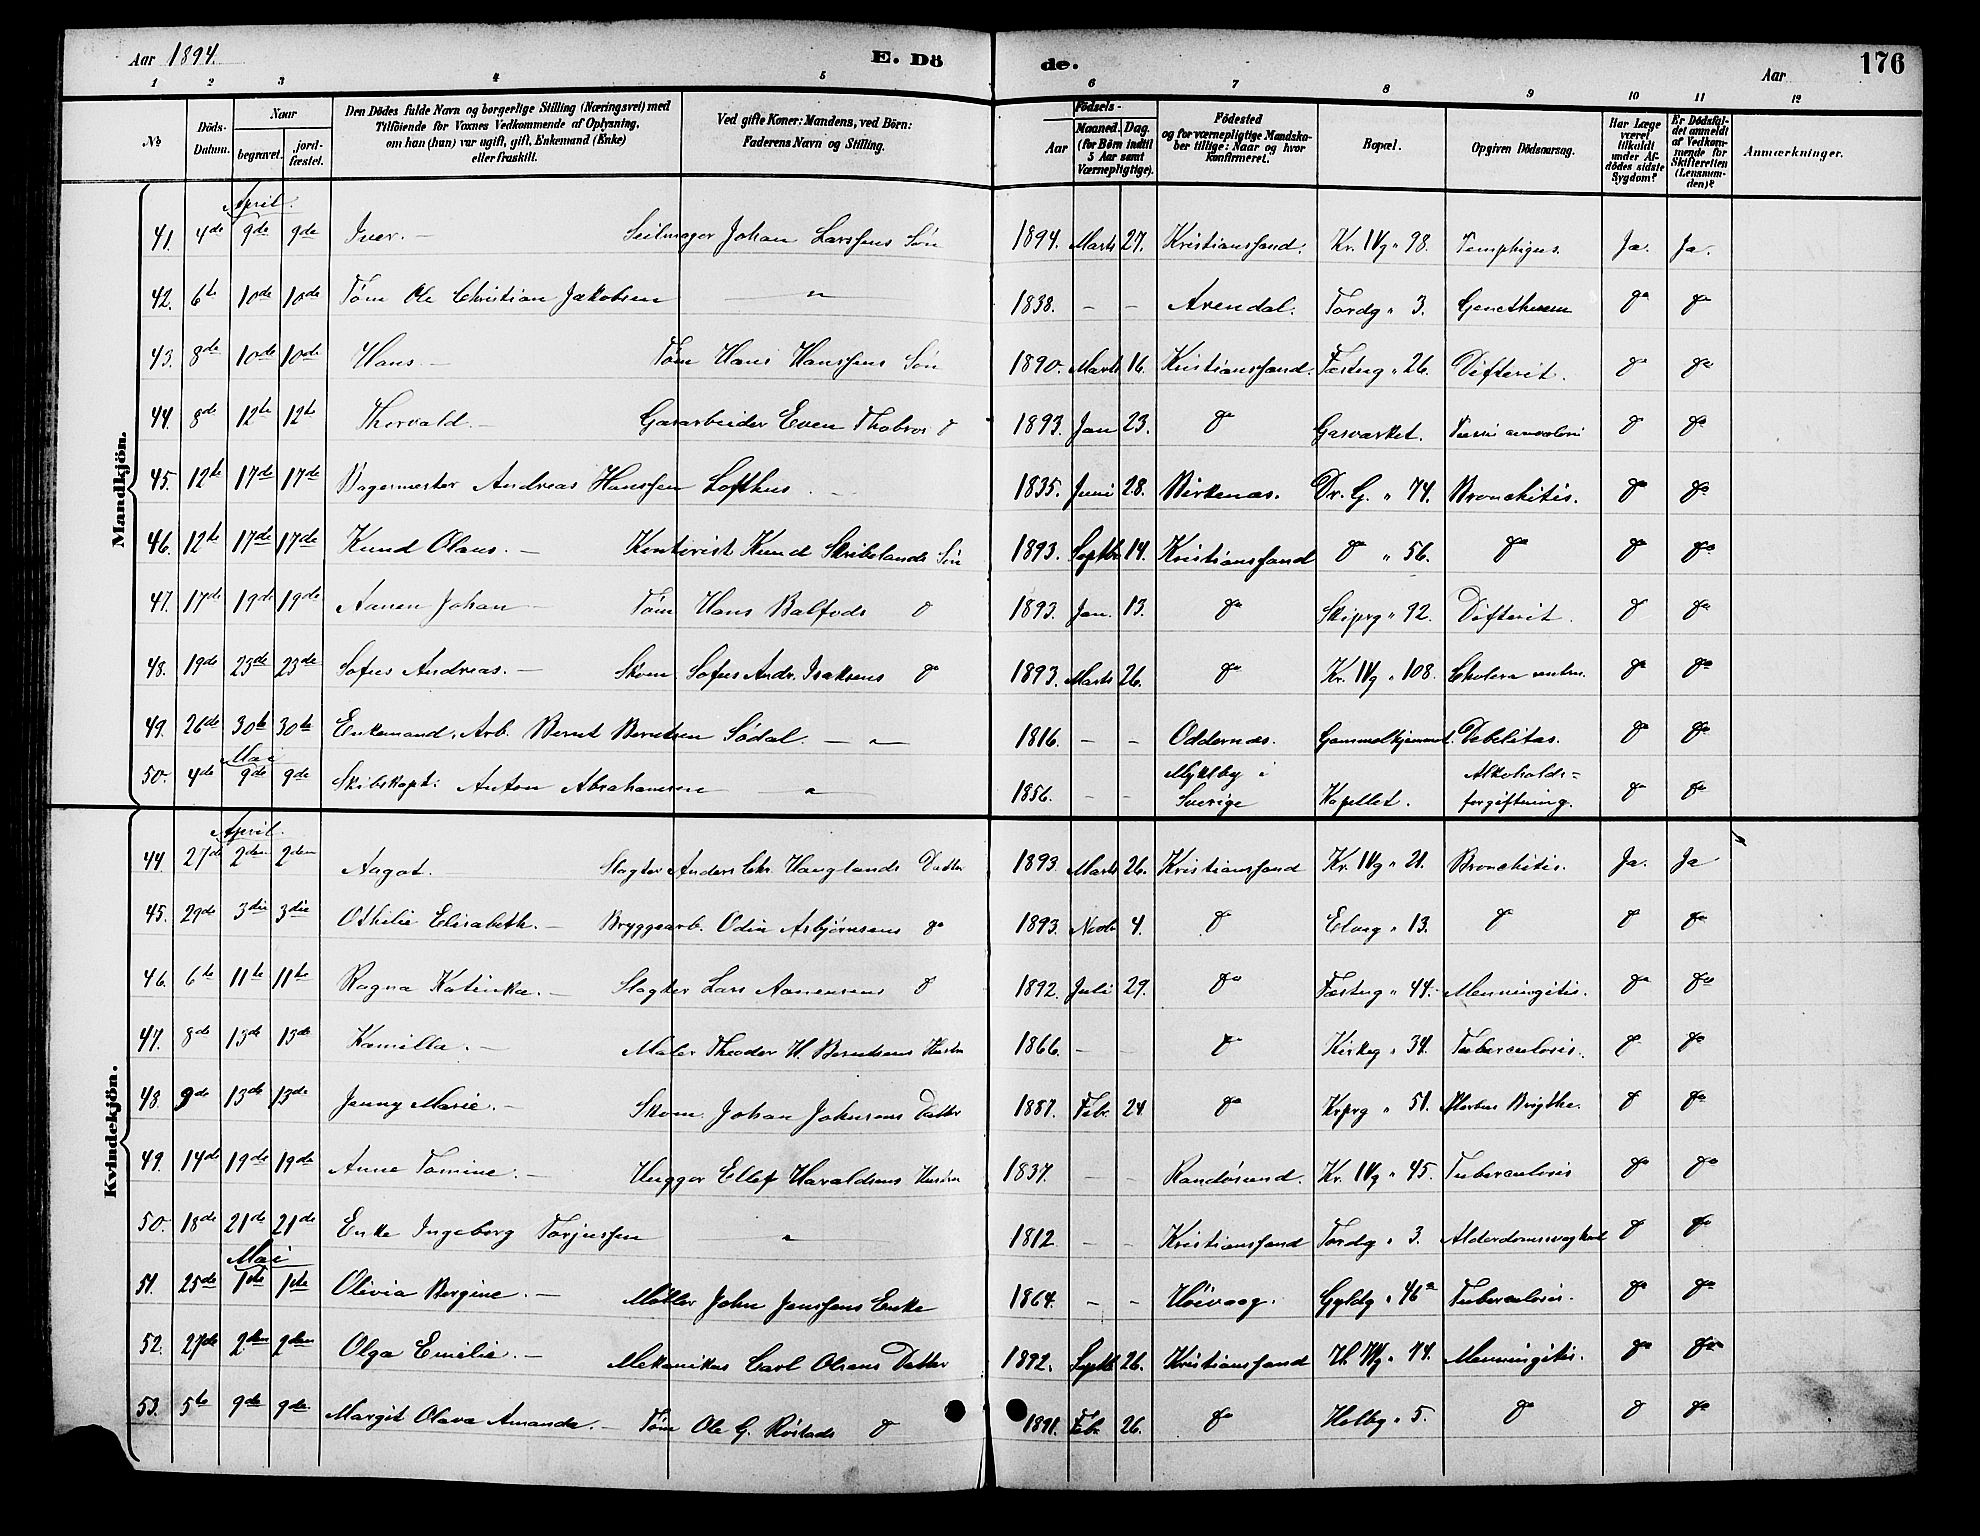 Aar 1894. E. Dö de. Aar 176
1 2 3 4 5 6 7 8 9 10 11 12
No
Döds-Datum.
Naar
begravet.
jord-fæstet.
Den Dödes fulde Navn og borgerlige Stilling (Næringsvei) med
Tilföiende for Voxnes Vedkommende af Oplysning,
om han (hun) var ugift, gift, Enkemand (Enke)
eller fraskilt.
Ved gifte Koner: Mandens, ved Börn:
Faderens Navn og Stilling.
Födsels-
Aar
Maaned. Dag.
(for Börn indtil
5 Aar samt
Værnepligtige).
Födested
og for værnepligtige Mandska-
ber tillige: Naar og hvor
konfirmeret.
Bopæl.
Opgiven Dödsaarsag.
Har Læge
været
tilkaldt
under Af-
dödes sidste
Sygdom?
Er Dödsfal-
det anmeldt
af Vedkom-
mende for
Skifteretten
(Lensman-
den)?
Anmærkninger.
Mandkjön.
April.
41. 4de 9de 9de Iver. – Seilmager Johan Larssens Sön 1894. Marts 27. Kristianssand. Kr. IVg " 98. Pemphigus. Ja. Ja.
42. 6te 10de 10de Töm Ole Christian Jakobsen " 1838. – – Arendal. Tordg " 3. do do
43. 8de 10de 10de Hans. – Töm Hans Hanssens Sön 1890. Marts 16. Kristianssand. Fæstng " 26. Difterit. do do
44. 8de 12te 12te Thorvald. – Gasarbeider Even do 1893. Jan 23. do Gasværket. do do
45. 12te 17de 17de Bagermester Andreas Hanssen Lofthus. – 1835. Juni 28. Birkenæs. Dr. G. " 74. Bronchitis. do do
46. 12te 17de 17de Knud Olaus. – Kontorist Knud Skibelands Sön 1893. Septbr 14. Kristianssand do " 56. do do do
47. 17de 19de 19de Aanen Johan – Töm Hans Balfods do 1893. Jan. 13. do Skiprg " 92. Difterit. do do
48. 19de 23de 23de Sofus Andreas. – Skom Sofus Andr. Isaksens do 1893. Marts 26. do Kr. IVg " 108. Cholera do do
49. 26de 30te 30te Enkemand, Arb. Bernt Berntsen Södal. – " 1816. – – Oddernæs. Debilitas. do do
Mai
50. 4de 9de 9de Skibskapt: Anton Abrahamsen " 1856. – – Myklby i
Sverige Kapellet. Alkoholds=
forgiftning. do do
Kvindekjön.
April.
44. 27de 2den 2den Aagot. – Slagter Anders Chr. Hauglands Datter 1893. Marts 26. Kristianssand Kr. IVg " 21. Bronchitis. Ja. Ja
45. 29de 3die 3die Othilie Elisabeth. – Bryggearb. Odin Asbjörnsens do 1893. Novbr 4. do Elveg " 13. do do do
46. 6te 11te 11te Ragna Katinka. – Slagter Lars Aanensens do 1892. Juli 29. do Fæstng " 44. Menningitis. do do
47. 8de 13de 13de Kamilla. – Maler Theodor H. Berntsens Hustru 1866. – – do Kirkeg " 34. Tuberculosis. do do
48. 9de 13de 13de Jenny Marie. – Skom. Johan Johnsens Datter 1887. Febr 24. do Krprg " 51. Morbus Brigthe. do do
49. 14de 19de 19de Anne Tomine. – Hugger Ellef Haraldsens Hustru 1837. – – Randösund. Kr. IVg " 45. Tuberculosis do do
50. 18de 21de 21de Enke Ingeborg Torjussen " 1812 – – Kristianssand Tordg " 3. Alderdomssvaghed do do
Mai
51. 25de 1ste 1ste Olivia Bergine. – Möller John Janssens Enke 1864. – – Höivaag. Gyldg " 46a Tuberculosis. do do
52. 27de 2den 2den Olga Emilie. – Mekanikus Carl Olsens Datter 1892. Septb 26. Kristianssand " 44. Menningitis. do do
53. 5te 9de 9de Margit Olava Amanda. – Töm Ole G. Röstads do 1891. Febr 26. do Holbg " 5. do do do